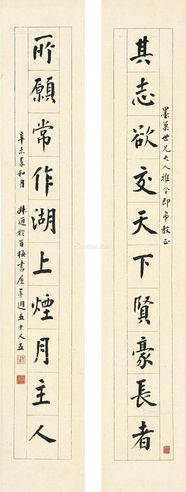 其志欲交天下賢豪長者
墨巢世兄大人雅令即希教正
所願常作湖上煙月主人
辛未
百梅書屋年週五十八五